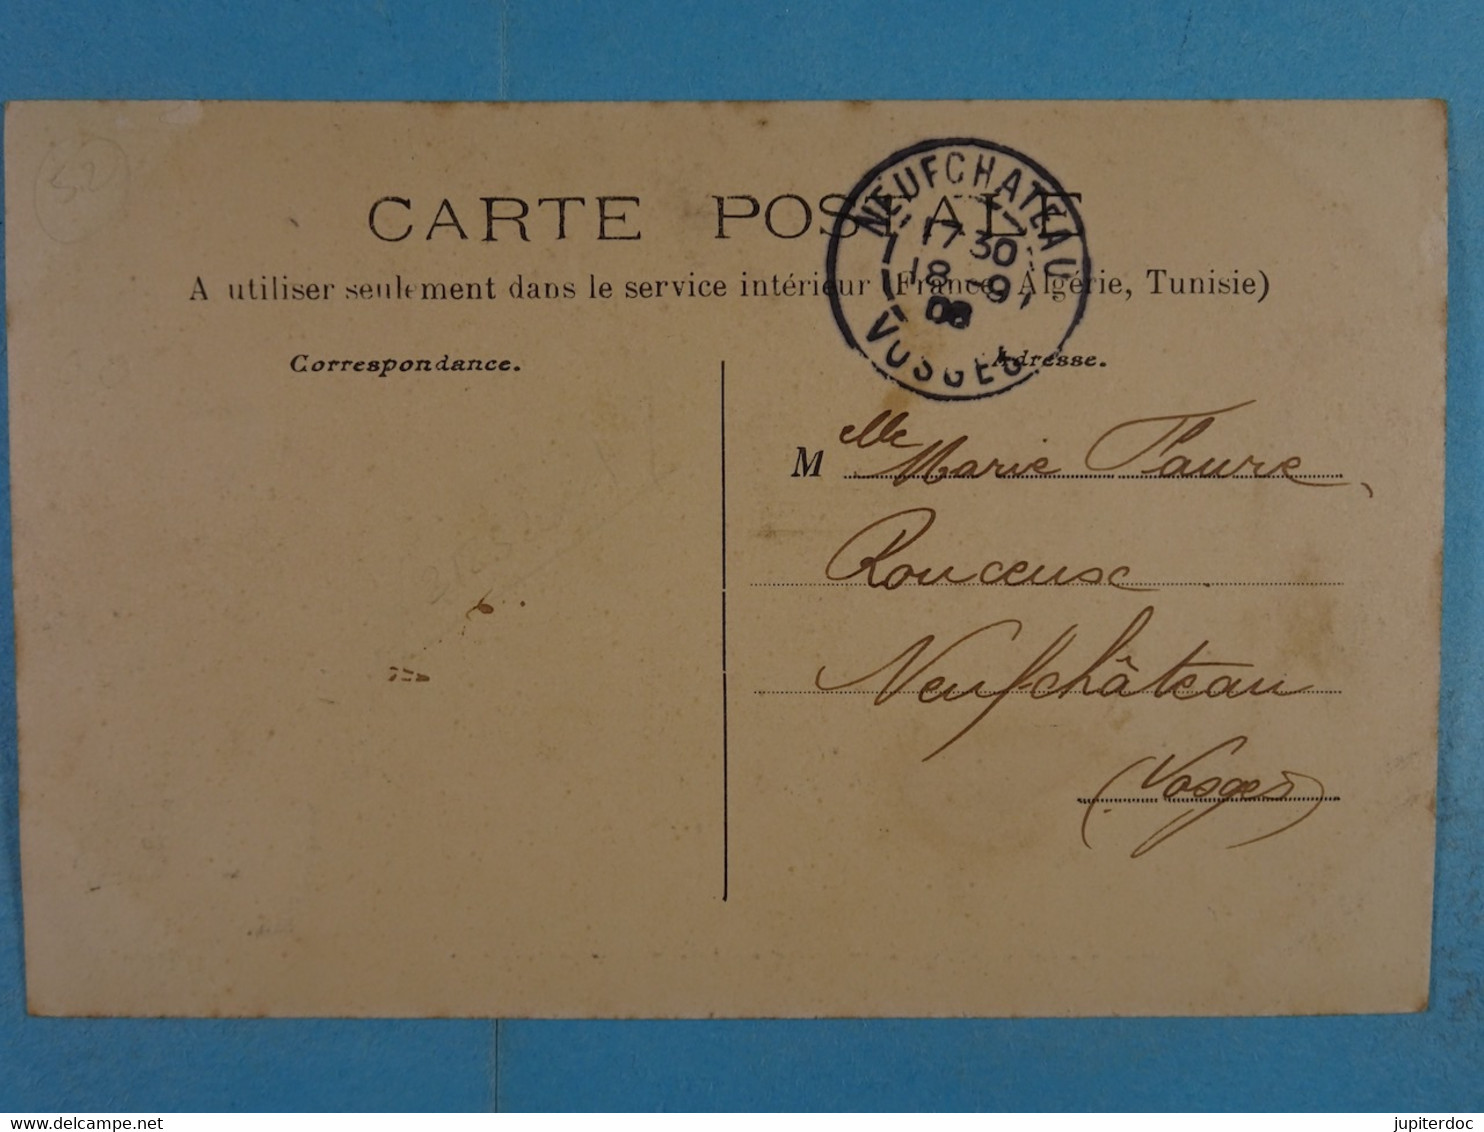 52
CARTE POSTALE
A utiliser seulement dans le service intérieur (France, Algérie, Tunisie)
NEUFCHATEAU
17 30
18 -9
08
VOSGES
Correspondance.
Adresse.
M elle Marie Faure,
Rouceux.
Neufchâteau
(Vosges)
delcampe.net
jupiterdoc